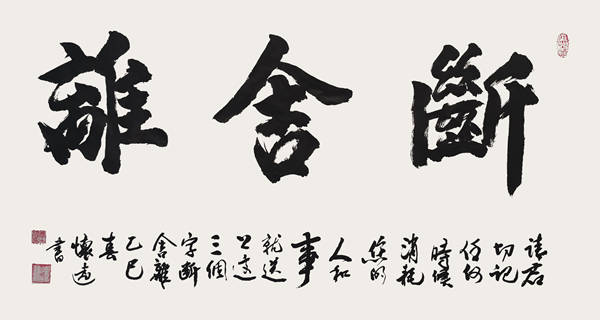 斷舍離
請君
切記
任何
時候
消耗
您的
人和
事
就送
上這
三個
字斷
舍離
乙巳
春
懷遠
書